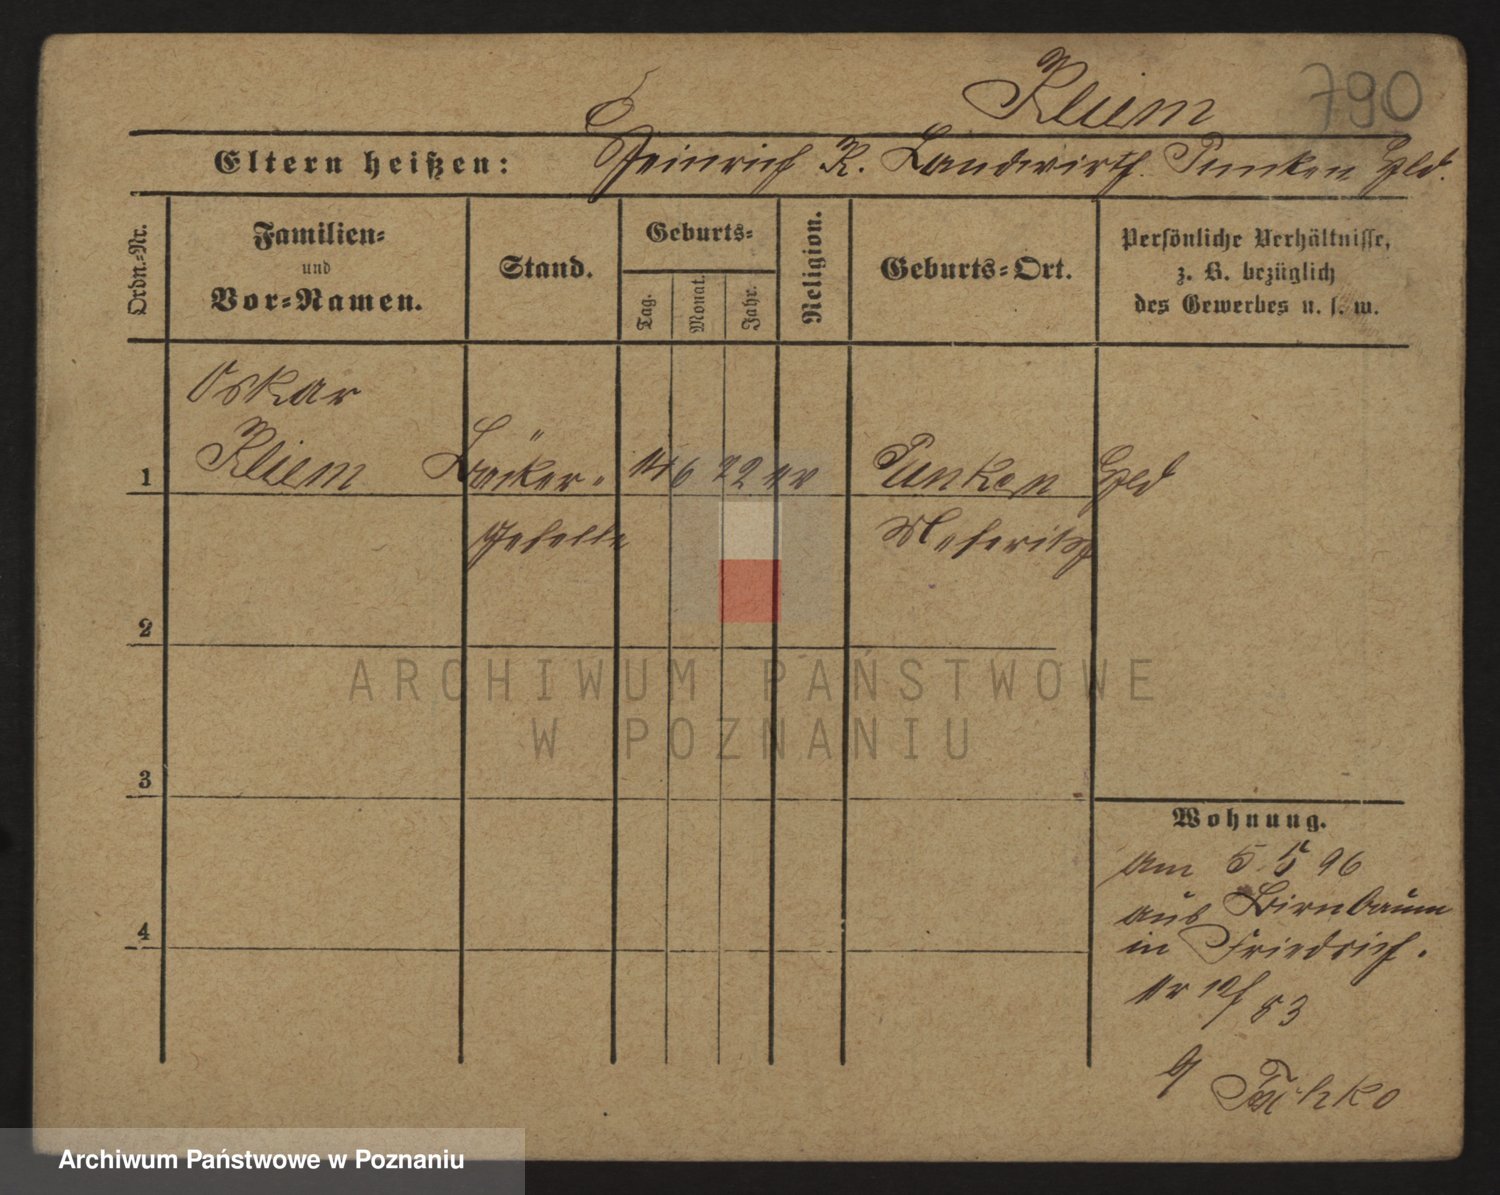 Kliem 790
Eltern heißen: Heinrich K. Landwirth. Punken Hld.
Ordn.-Nr.
Familien-
und
Vor-Namen.
Stand.
Geburts-
Tag.
Monat.
Jahr.
Religion.
Geburts-Ort.
Persönliche Verhältnisse,
z. B. bezüglich
des Gewerbes u. s. w.
Oskar
1 Kliem Bäcker- 14 6 72 ev Punken Hld
geselle Meseritz
2
3
4
Wohnung.
Am 5. 5 96
aus Birnbaum
in Friedrich.
Nr
ARCHIWUM PAŃSTWOWE
W POZNANIU
Archiwum Państwowe w Poznaniu